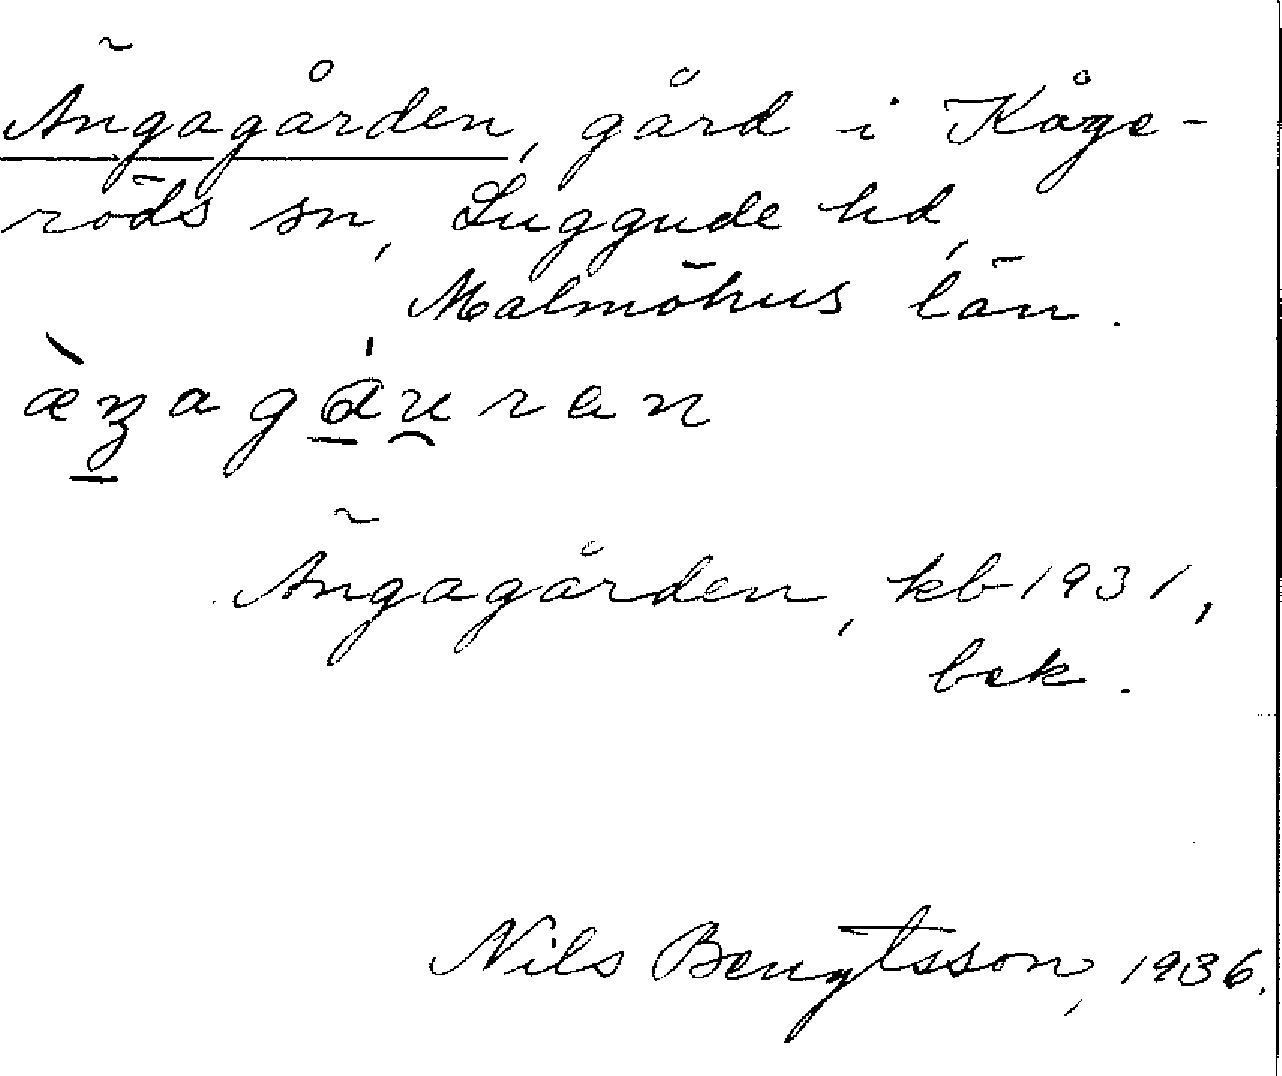 Ängagården, gård i Kåge-
röds sn, Luggude hd,
Malmöhus län.
Ängagården, kb 1931,
bek.
Nils Bengtsson, 1936.